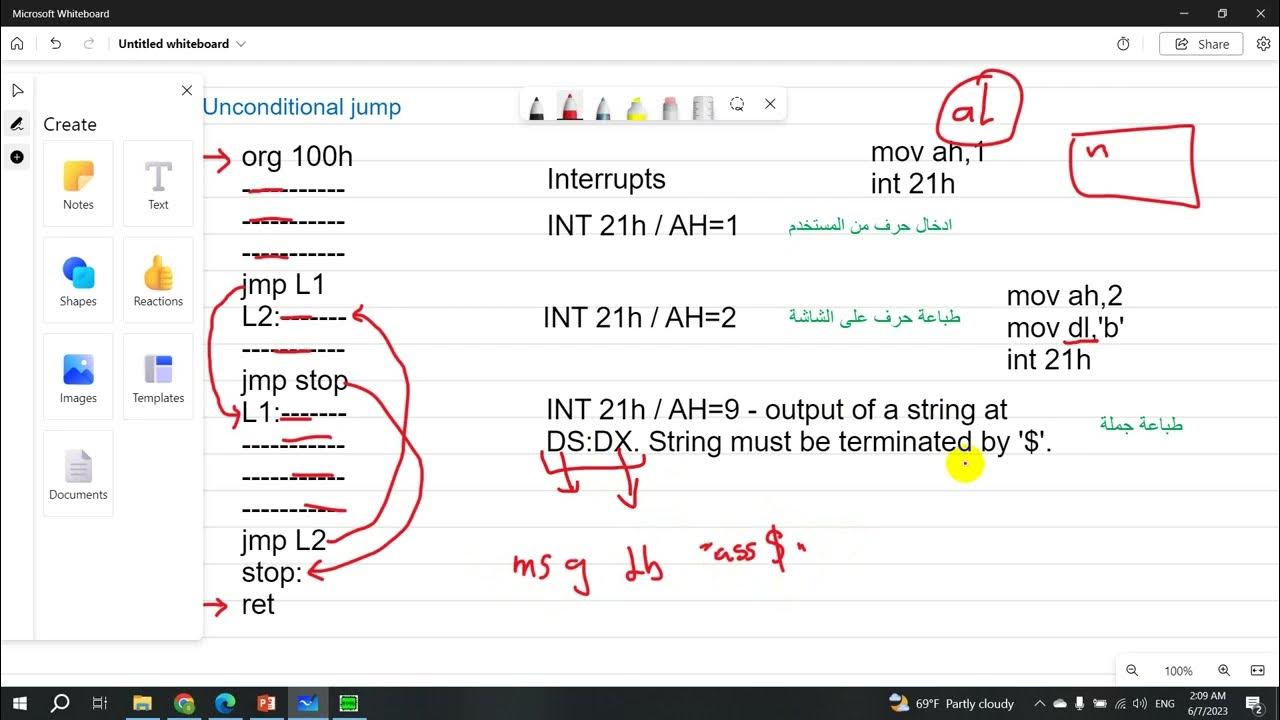 Microsoft Whiteboard
Untitled whiteboard
Share
Create
Notes
Text
Shapes
Reactions
Images
Templates
Documents
Unconditional jump
org 100h
-----------
-----------
-----------
jmp L1
L2:-------
-----------
jmp stop
L1:-------
-----------
-----------
-----------
jmp L2
stop:
ret
Interrupts
INT 21h / AH=1
ادخال حرف من المستخدم
al
mov ah,1
int 21h
n
INT 21h / AH=2
طباعة حرف على الشاشة
mov ah,2
mov dl,'b'
int 21h
INT 21h / AH=9 - output of a string at
DS:DX. String must be terminated by '$'.
طباعة جملة
msg db "ass$"
100%
69°F Partly cloudy
ENG
2:09 AM
6/7/2023
2